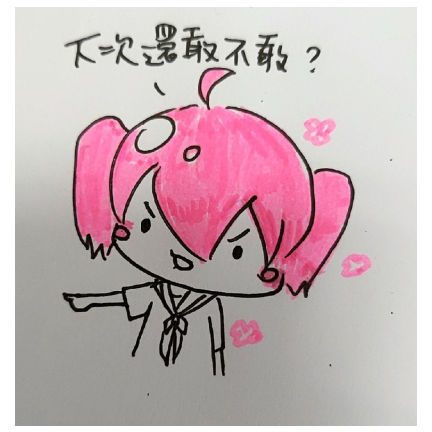 下次還敢不敢？